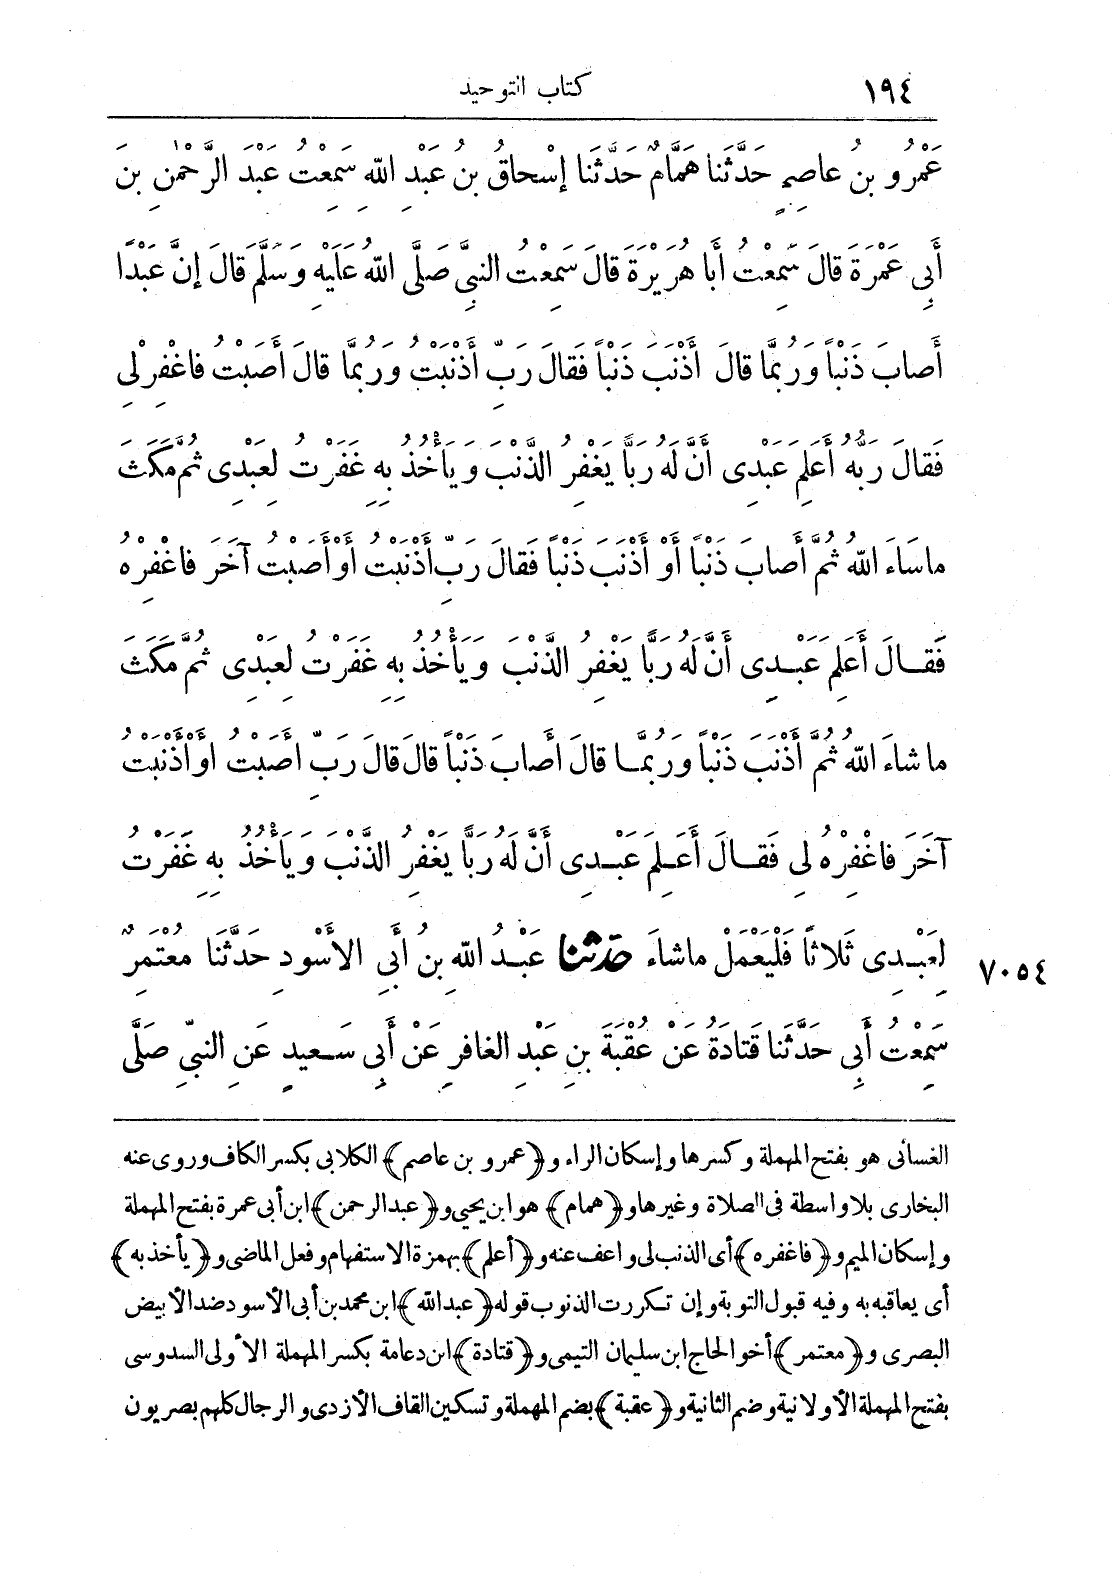 ١٩٤ كتاب التوحيد
عَمْرُو بنُ عاصِمٍ حَدَّثَنا هَمَّامٌ حَدَّثَنا إسْحاقُ بن عَبْدِ اللهِ سَمِعْتُ عبدَ الرَّحْمٰنِ بنَ
أَبِى عَمْرَةَ قالَ سَمِعْتُ أبا هُرَيْرَةَ قالَ سَمِعْتُ النبىَّ صَلَّى اللهُ عَلَيْهِ وَسَلَّمَ قالَ إنَّ عَبْدًا
أَصابَ ذَنْباً وَرُبَّمَا قالَ أَذْنَبَ ذَنْباً فَقالَ رَبِّ أَذْنَبْتُ وَرُبَّمَا قالَ أَصَبْتُ فاغْفِرْ لِى
فَقالَ رَبُّهُ أَعَلِمَ عَبْدِى أَنَّ لَهُ رَبًّا يَغْفِرُ الذَّنْبَ وَيَأْخُذُ بِهِ غَفَرْتُ لِعَبْدِى ثُمَّ مَكَثَ
ماشَاءَ اللهُ ثُمَّ أَصابَ ذَنْباً أَوْ أَذْنَبَ ذَنْباً فَقالَ رَبِّ أَذْنَبْتُ أَوْ أَصَبْتُ آخَرَ فاغْفِرْهُ
فَقالَ أَعَلِمَ عَبْدِى أَنَّ لَهُ رَبًّا يَغْفِرُ الذَّنْبَ وَيَأْخُذُ بِهِ غَفَرْتُ لِعَبْدِى ثُمَّ مَكَثَ
ما شاءَ اللهُ ثُمَّ أَذْنَبَ ذَنْباً وَرُبَّما قالَ أَصابَ ذَنْباً قالَ قالَ رَبِّ أَصَبْتُ أَوْ أَذْنَبْتُ
آخَرَ فاغْفِرْهُ لِى فَقالَ أَعَلِمَ عَبْدِى أَنَّ لَهُ رَبًّا يَغْفِرُ الذَّنْبَ وَيَأْخُذُ بِهِ غَفَرْتُ
لِعَبْدِى ثَلاثاً فَلْيَعْمَلْ ماشاءَ حَدَّثَنا عَبْدُ اللهِ بنُ أَبِى الأَسْوَدِ حَدَّثَنَا مُعْتَمِرٌ ٧٠٥٤
سَمِعْتُ أَبِى حَدَّثَنا قَتادَةُ عَنْ عُقْبَةَ بنِ عَبْدِ الغافِرِ عَنْ أَبِى سَعِيدٍ عَنِ النبىِّ صَلَّى
الغسانى هو بفتح المهملة وكسرها وإسكان الراء و﴿عمرو بن عاصم﴾ الكلابى بكسر الكاف وروى عنه
البخارى بلا واسطة فى الصلاة وغيرها و﴿همام﴾ هو ابن يحيى و﴿عبد الرحمن﴾ ابن أبى عمرة بفتح المهملة
وإسكان الميم و﴿فاغفره﴾ أى الذنب لى واعف عنه و﴿أعلم﴾ بهمزة الاستفهام وفعل الماضى و﴿يأخذ به﴾
أى يعاقبه به وفيه قبول التوبة وإن تكررت الذنوب قوله ﴿عبد الله﴾ ابن محمد بن أبى الأسود ضد الأبيض
البصرى و﴿معتمر﴾ أخو الحاج ابن سليمان التيمى و﴿قتادة﴾ ابن دعامة بكسر المهملة الأولى السدوسى
بفتح المهملة الأولانية وضم الثانية و﴿عقبة﴾ بضم المهملة وتسكين القاف الأزدى والرجال كلهم بصريون